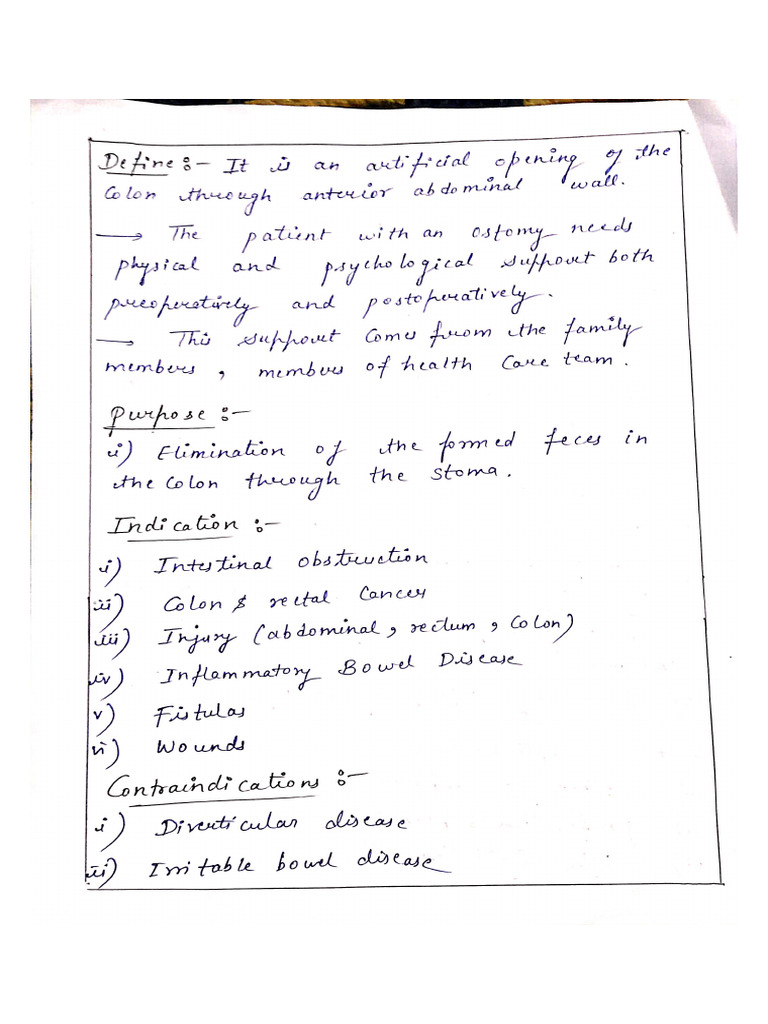 Define :- It is an artificial opening of the
Colon through anterior abdominal wall.
→ The patient with an ostomy needs
physical and psychological support both
preoperatively and postoperatively.
→ This support comes from the family
members, members of health Care team.
Purpose :-
i) Elimination of the formed feces in
the Colon through the stoma.
Indication :-
i) Intestinal obstruction
ii) Colon & rectal Cancer
iii) Injury (abdominal, rectum, Colon)
iv) Inflammatory Bowel Disease
v) Fistulas
vi) Wounds
Contraindications :-
i) Diverticular disease
ii) Irritable bowel disease